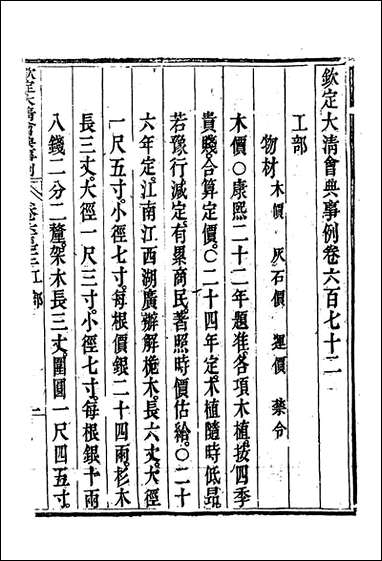 欽定大清會典事例卷六百七十二
工部
物材 木價 灰石價 運價 禁令
木價○康熙二十二年題准各項木植按四季
貴賤合算定價○二十四年定木植隨時低昂
若豫行減定有累商民著照時價估給○二十
六年定江南江西湖廣辦解桅木長六丈大徑
一尺五寸小徑七寸每根價銀二十四兩杉木
長三丈大徑一尺三寸小徑七寸每根銀十兩
八錢二分二釐架木長三丈圍圓一尺四五寸
欽定大清會典事例 工部 一